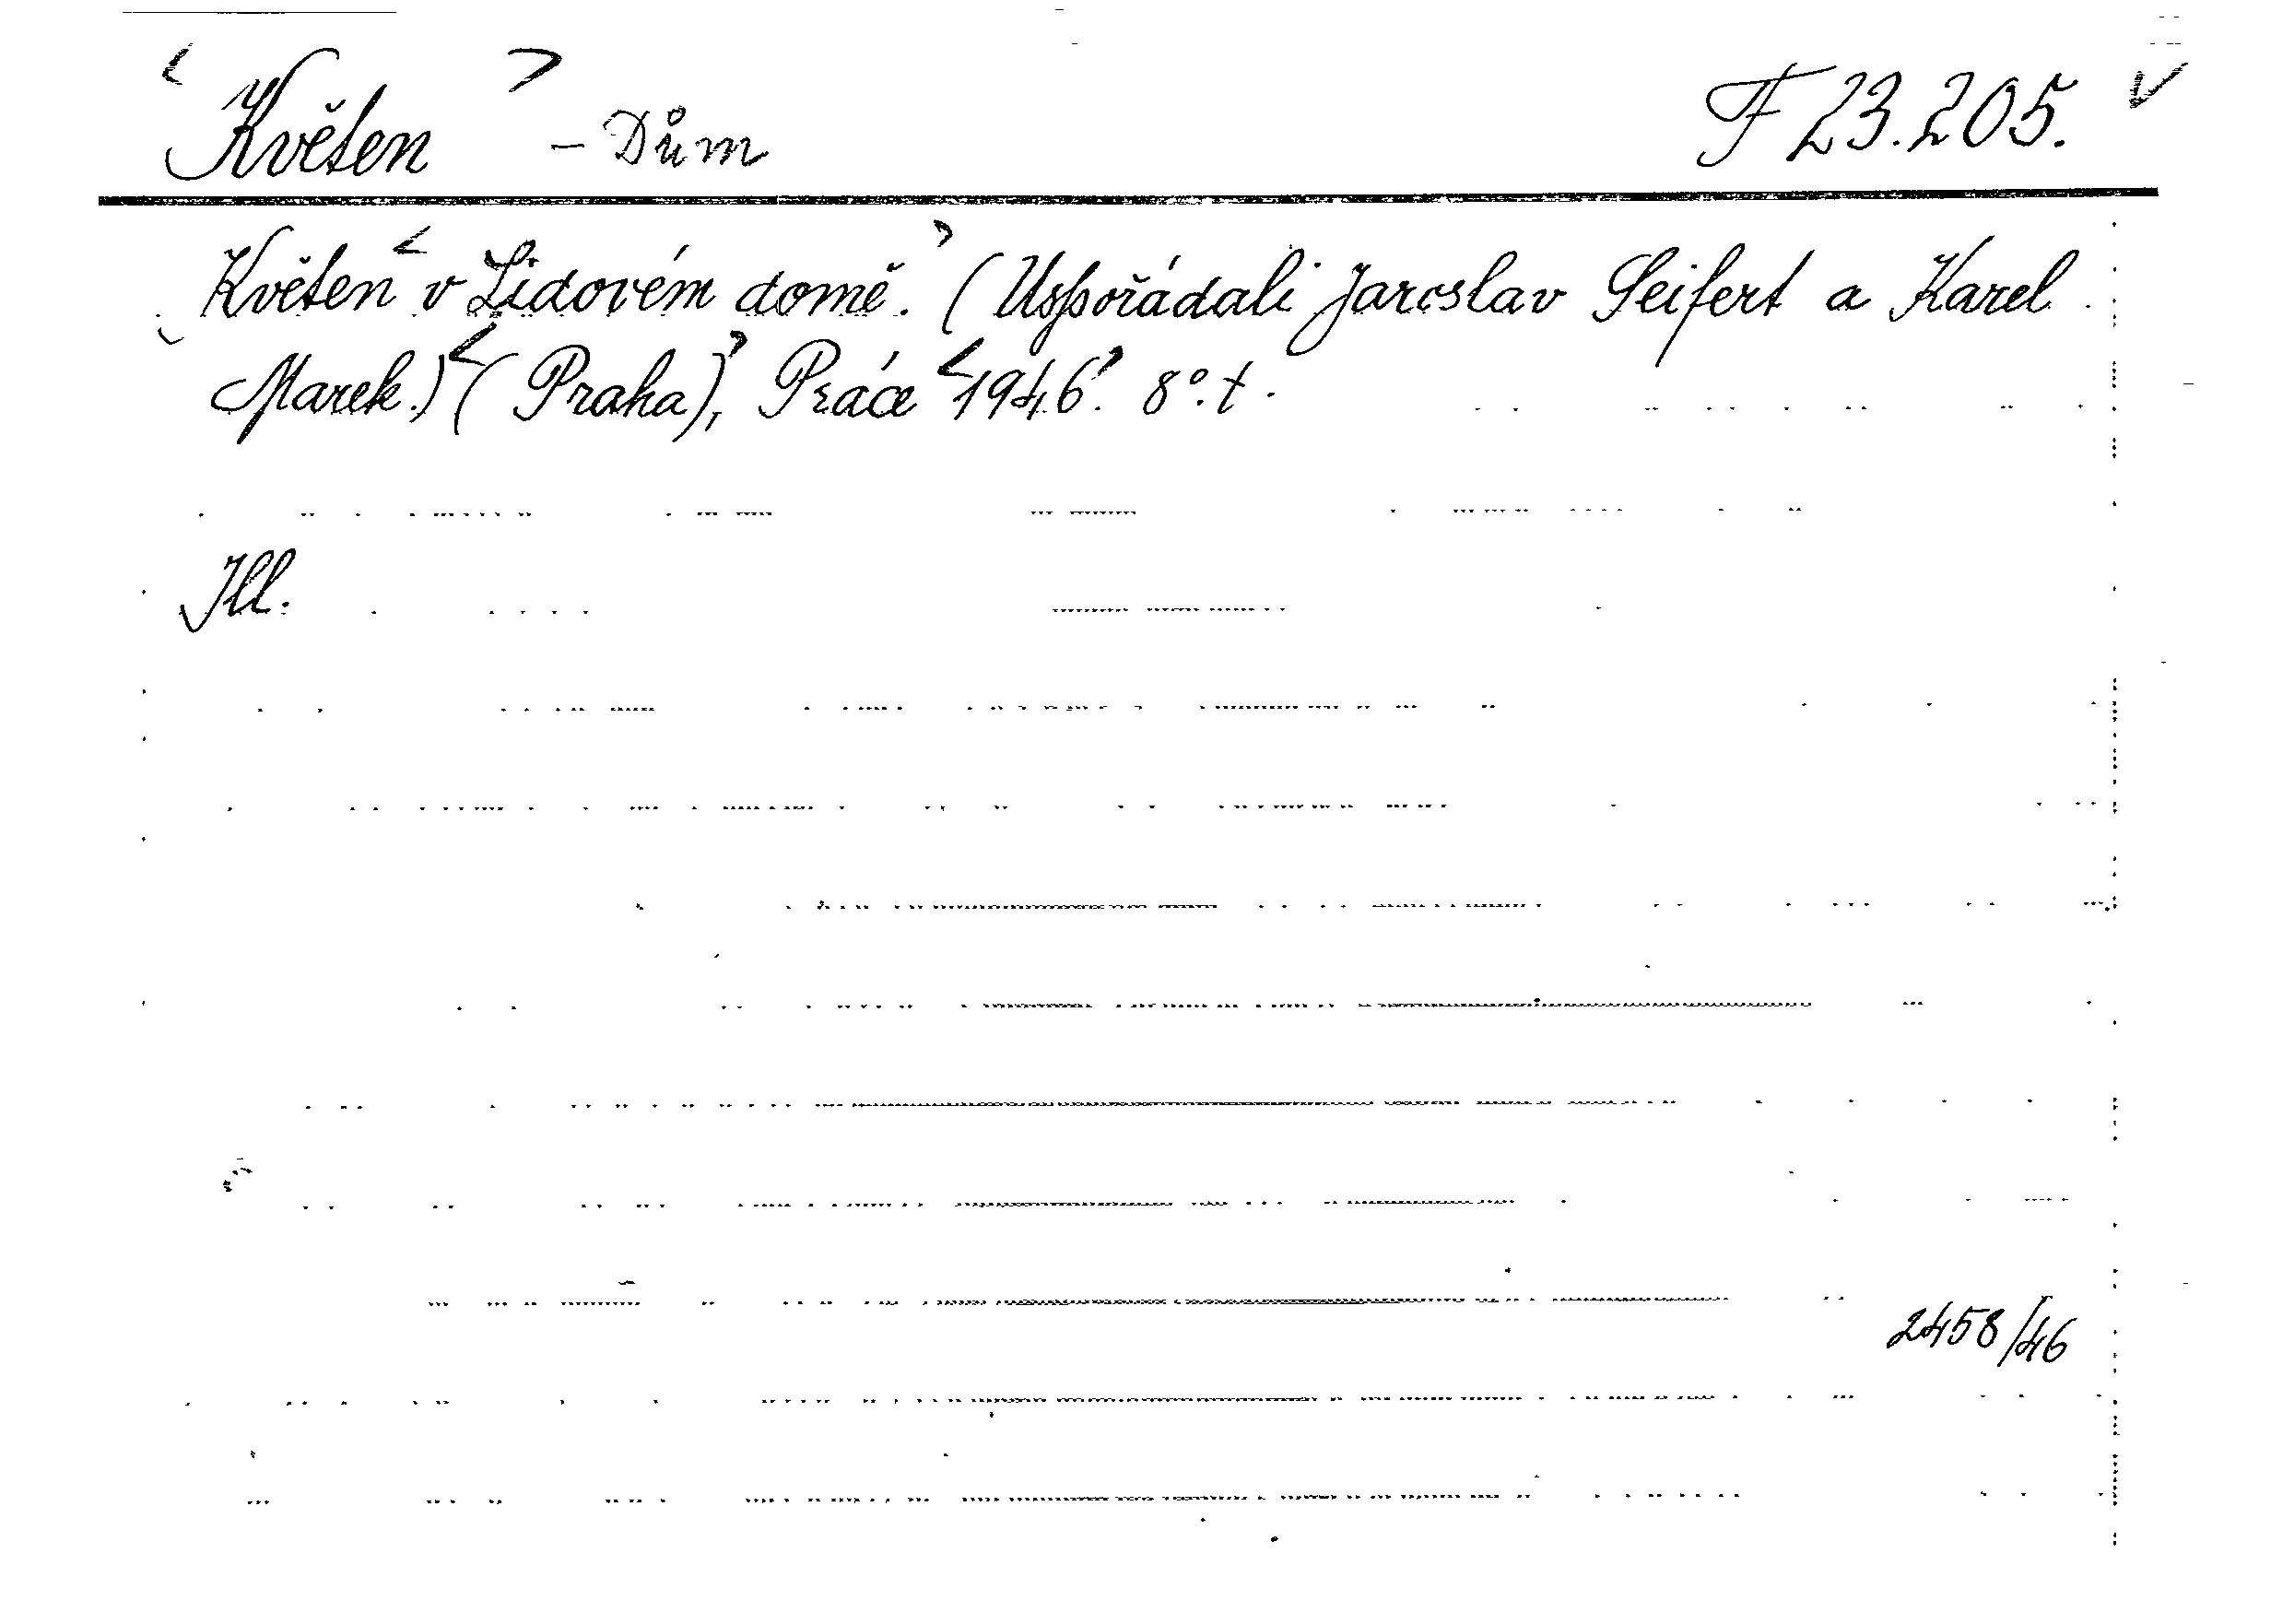 <Květen> - Dům F 23.205. ✓
Květen <v Lidovém domě.> (Uspořádali Jaroslav Seifert a Karel
Marek.) <(Praha),> Práce <1946>. 8°. t.
Ill.
2458/46